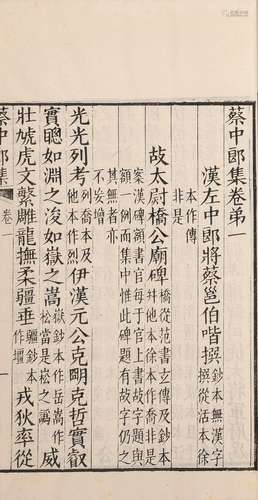 蔡中郎集卷弟一
漢左中郎將蔡邕伯喈撰鈔本無漢字撰從活本徐
本作傳非是
故太尉橋公廟碑橋從范書玄傳及鈔本幷他本徐本作喬非是
家漢碑領書官每于官上書故字題與額一例而集中惟此碑題有故字仍之
其無者亦不妄增
光光列考列喬本及他本作烈伊漢元公克朙克哲實叡
實聰如淵之浚如嶽之嵩嶽鈔本作岳嵩作崧當是崧之譌威
壯虓虎文繁雕龍撫柔疆垂疆鈔本作壇戎狄率從
蔡中郎集 卷一